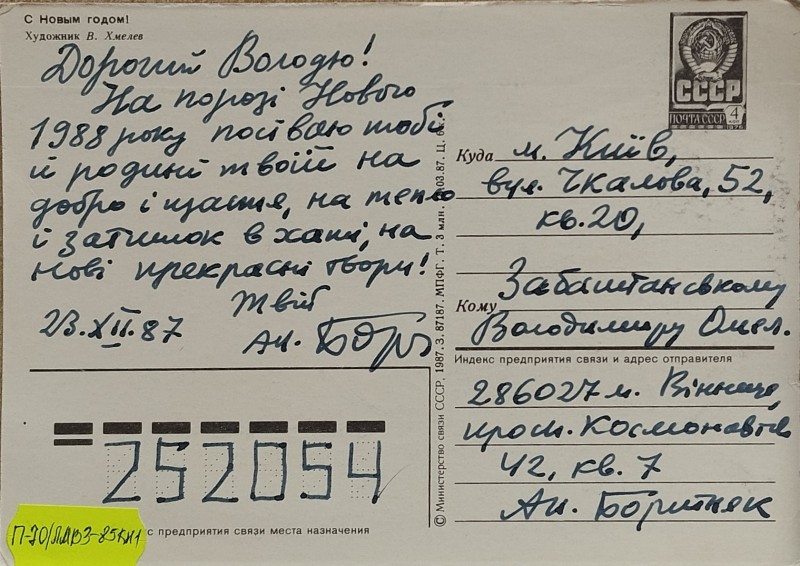 С Новым годом!
Художник В. Хмелев
Дорогий Володю!
На порозі Нового
1988 року посіваю тобі
й родині твоїй на
добро і щастя, на тепло
і затишок в хаті, на
нові прекрасні твори!
Твій
23.XII.87
Ан. Борт
СССР
ПОЧТА СССР
4 коп
1976
Куда м. Київ,
вул. Чкалова, 52,
кв. 20,
Забаштанському
Кому
Володимиру Омел.
Индекс предприятия связи и адрес отправителя
286027 м. Вінниця,
просп. Космонавтів
42, кв. 7
Ан. Бортняк
© Министерство связи СССР, 1987. З. 87187. МПФГ. Т. 3 млн. 03.87. Ц. к.
252054
с предприятия связи места назначения
П-70/ЛАВЗ-85кн1